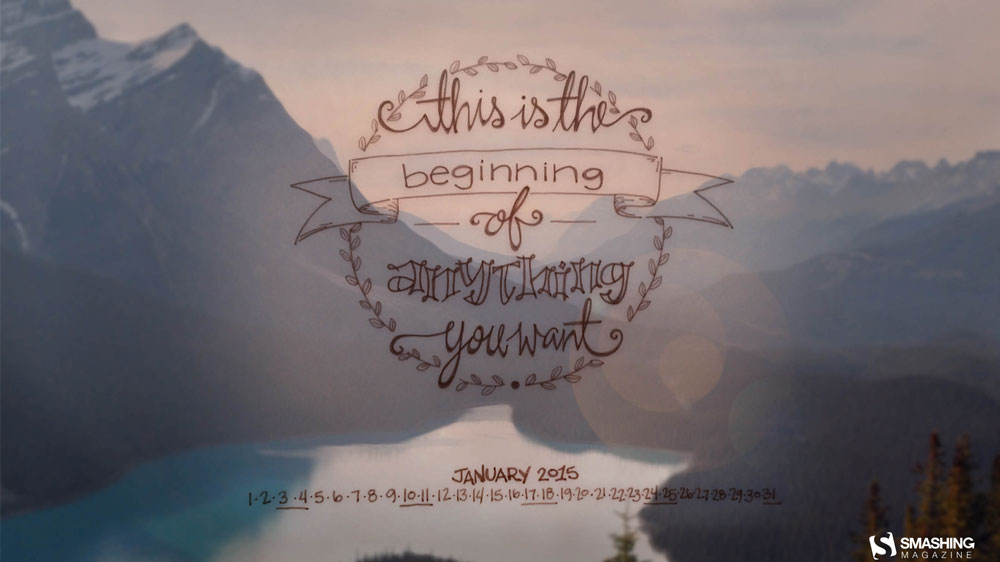 this is the
beginning
of
anything
you want
JANUARY 2015
1·2·3·4·5·6·7·8·9·10·11·12·13·14·15·16·17·18·19·20·21·22·23·24·25·26·27·28·29·30·31
SMASHING
MAGAZINE